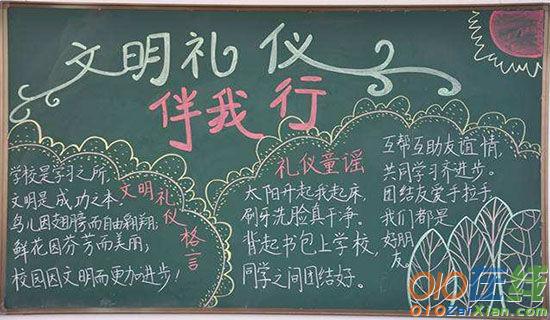 文明礼仪
伴我行
学校是学习之所，
文明是成功之本。
鸟儿因翅膀而自由翱翔，
鲜花因芬芳而美丽；
校园因文明而更加进步！
文明礼仪
格言
礼仪童谣
太阳升起我起床，
刷牙洗脸真干净。
背起书包上学校，
同学之间团结好。
互帮互助友谊情，
共同学习齐进步。
团结友爱手拉手，
我们都是
好朋友。
010在线
010ZaiXian.com